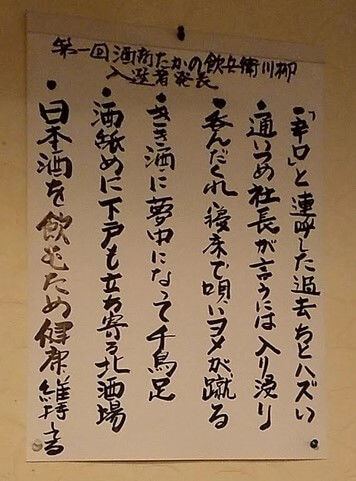 第一回酒商たかの飲兵衛川柳
入選者発表
・「辛口」と連呼した過去ちとハズい
・通いつめ社長が言うには入り浸り
・呑んだくれ寝床で唄いヨメが蹴る
・きき酒に夢中になって千鳥足
・酒舐めに下戸も立ち寄る北酒場
・日本酒を飲むため健康維持する